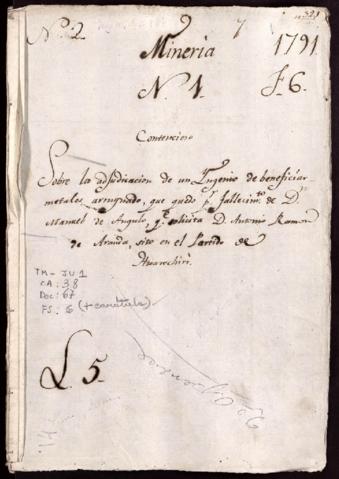 N.º 2
7
1791
Mineria
N. 1.
F. 6.
Contencioso
Sobre la adjudicacion de un Yngenio de beneficiar
metales arruynado, que quedo pr. fallecim.to de Dn.
Manuel de Angulo, qe. solicita D. Antonio Ramon
de Aranda, sito en el Partido de
Huarochiri.
TM-JU1
CA: 38
DOC: 67
FS: 6 (+ caratula)
L. 5.